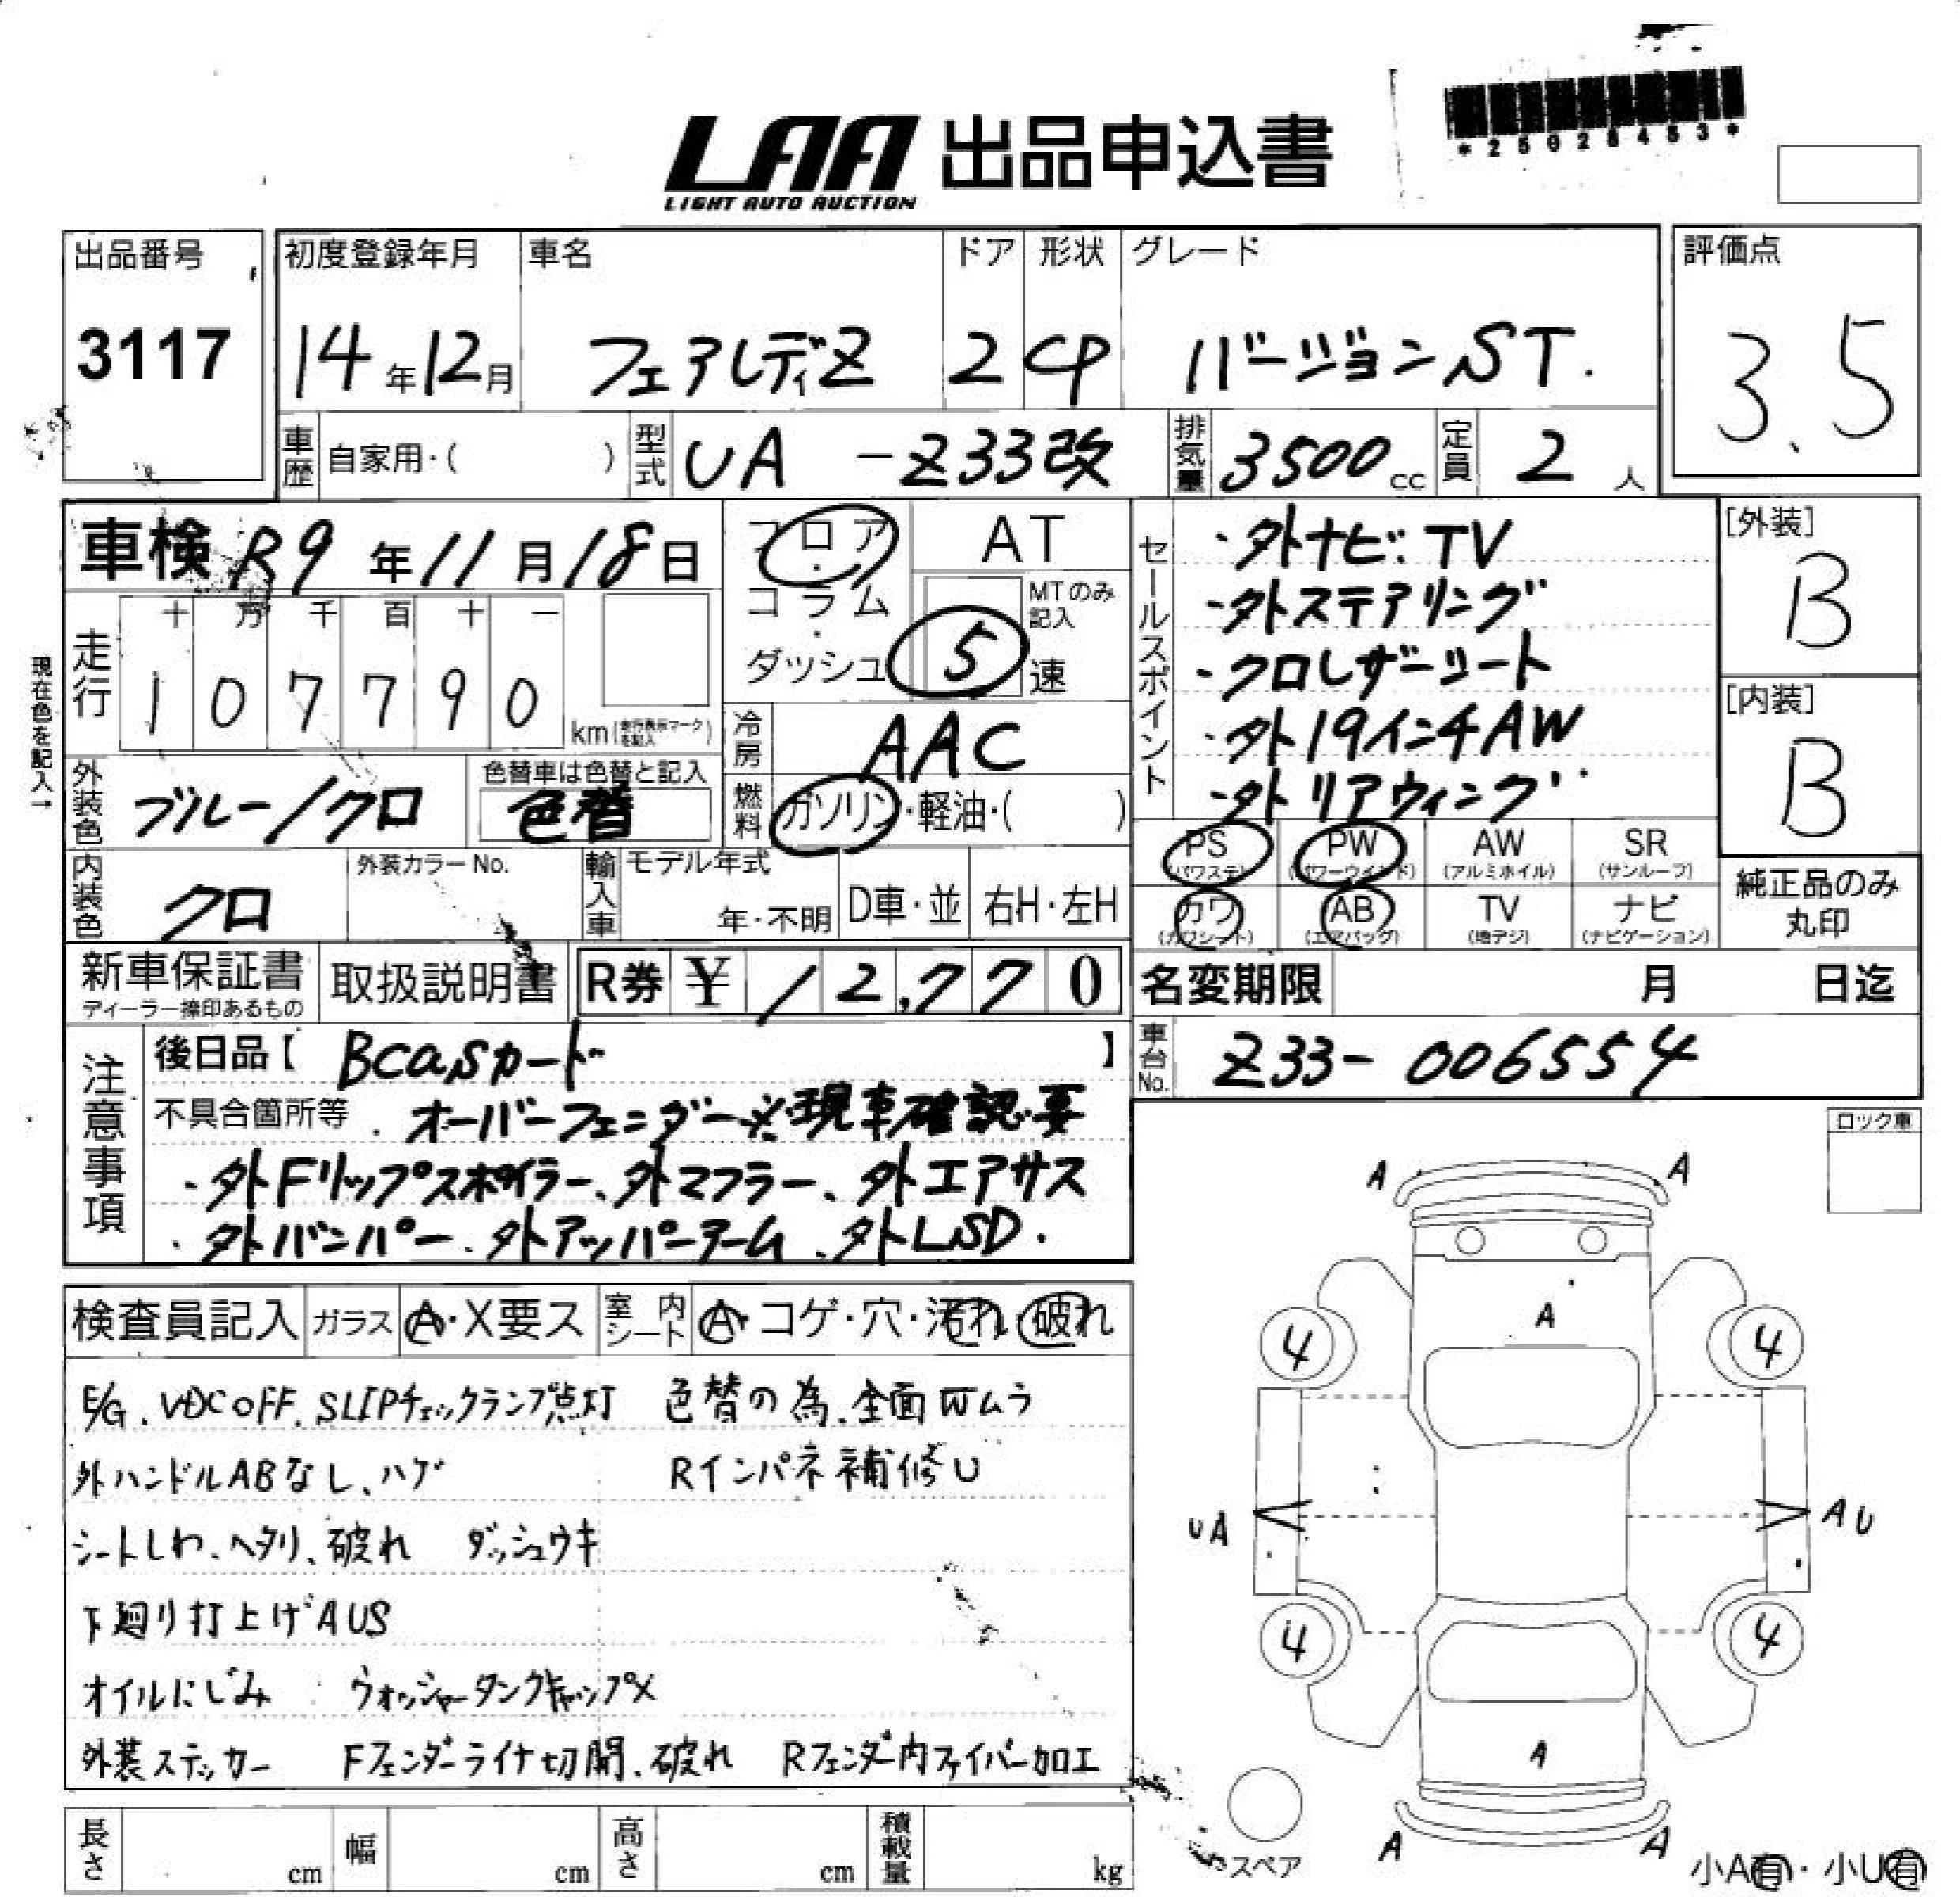 *25028453*
LAA 出品申込書
LIGHT AUTO AUCTION
出品番号 初度登録年月 車名 ドア 形状 グレード 評価点
3117 14年12月 フェアレディZ 2 CP バージョンST. 3.5
車歴 自家用・( ) 型式 UA -Z33改 排気量 3500cc 定員 2人
車検 R9年11月18日
フロア・コラム・ダッシュ AT
MTのみ記入 5速
セールスポイント
・外ナビ.TV
・外ステアリング
・クロレザーシート
・外19インチAW
・外リアウィング
[外装] B
[内装] B
現在色を記入→
走行 十 万 千 百 十 一
107790 km (走行表示マークを記入)
冷房 AAC
外装色 ブルー/クロ 色替車は色替と記入 色替
燃料 ガソリン・軽油・( )
PS (パワステ) PW (パワーウインド) AW (アルミホイル) SR (サンルーフ)
カワ (カワシート) AB (エアバッグ) TV (地デジ) ナビ (ナビゲーション)
純正品のみ丸印
内装色 クロ 外装カラーNo. 輸入車 モデル年式 年・不明 D車・並 右H・左H
新車保証書 ディーラー捺印あるもの 取扱説明書 R券 ¥12,770 名変期限 月 日迄
車台No. Z33-006554
注意事項
後日品【 Bcasカード 】
不具合箇所等 ・オーバーフェンダー※現車確認要
・外Fリップスポイラー、外マフラー、外エアサス
・外バンパー、外アッパーアーム、外LSD.
ロック車
検査員記入 ガラス A・X要ス 室内シート A・コゲ・穴・汚れ・破れ
E/G、VDC OFF、SLIPチェックランプ点灯 色替の為、全面Wムラ
外ハンドルABなし、ハゲ Rインパネ補修U
シートしわ、ヘタリ、破れ ダッシュウキ
下廻り打上げAUS
オイルにじみ ウォッシャータンクキャップX
外装ステッカー Fフェンダーライナ切開、破れ Rフェンダー内ファイバー加工
A A
A
4 4
UA AU
4 4
A
A A
スペア
小A有・小U有
長さ cm 幅 cm 高さ cm 積載量 kg